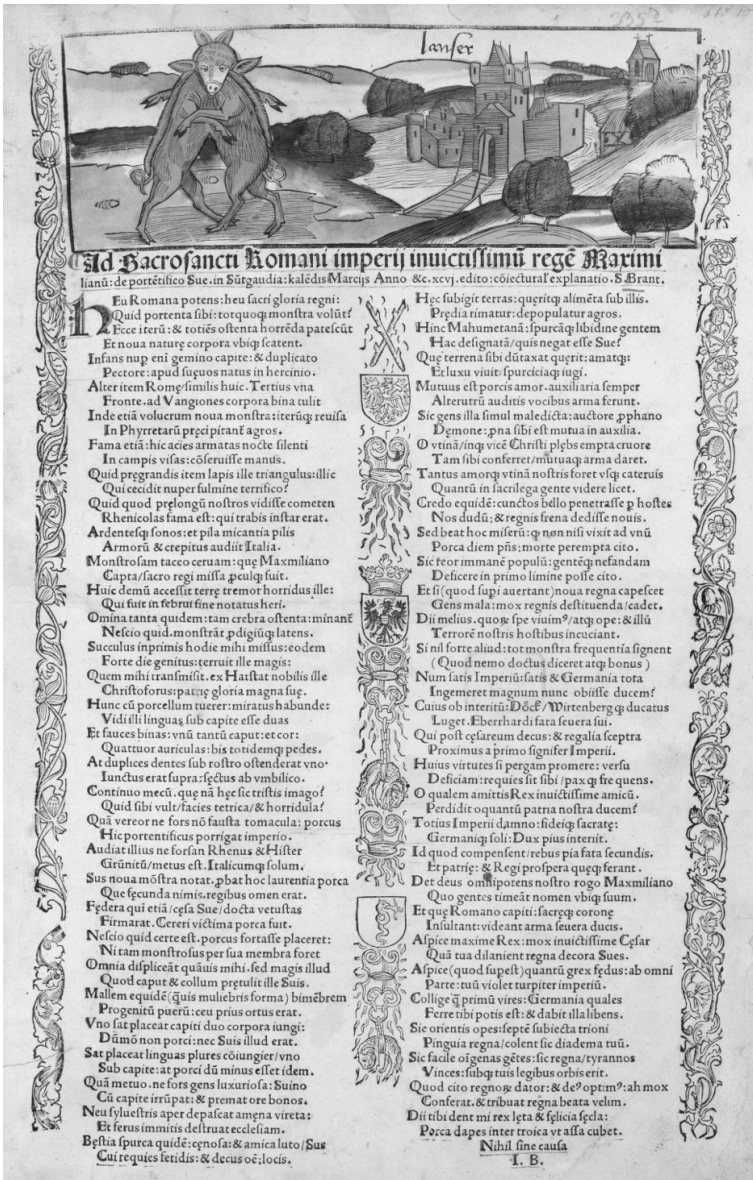 335ᵈ
lanser
Ad Sacrosancti Romani imperij inuictissimū regē Maximi
lianū: de portētifico Sue. in Sūtgaudia: kalēdis Marcijs Anno &c. xcvj. edito: cōiectural' explanatio. S. Brant.
HEu Romana potens: heu sacri gloria regni:
Quid portenta sibi: totquoqꝫ monstra volūt?
Ecce iterū: & totiēs ostenta horrēda patescūt
Et noua nature corpora vbiqꝫ scatent.
Infans nup enī gemino capite: & duplicato
Pectore: apud suęuos natus in hercinio.
Alter item Romę/similis huic. Tertius vna
Fronte. ad Vangiones corpora bina tulit
Inde etiā volucrum noua monstra: iterūqꝫ reuisa
In Phyrretarū pręcipitant agros.
Fama etiā: hic acies armatas nocte silenti
In campis visas: cōseruisse manus.
Quid pręgrandis item lapis ille triangulus: illic
Qui cecidit nuper fulmine terrifico?
Quid quod prelongū nostros vidisse cometen
Rhenicolas fama est: qui trabis instar erat.
Ardentesqꝫ sonos: et pila micantia pilis
Armorū & crepitus audiit Italia.
Monstrosam taceo ceruam: quę Maximiliano
Capta/sacro regi missa ꝓculqꝫ fuit.
Huic demū accessit terrę tremor horridus ille:
Qui fuit in februi fine notatus heri.
Omina tanta quidem: tam crebra ostenta: minant
Nescio quid. monstrāt ꝓdigiūqꝫ latens.
Succulus inprimis hodie mihi missus: eodem
Forte die genitus: terruit ille magis:
Quem mihi transmisit. ex Hatstat nobilis ille
Christoforus: patrię gloria magna suę.
Hunc cū porcellum tuerer: miratus habunde:
Vidi illi linguas sub capite esse duas
Et fauces binas: vnū tantū caput: et cor:
Quattuor auriculas: bis totidemqꝫ pedes.
At duplices dentes sub rostro ostenderat vno·
Iunctus erat supra: sęctus ab vmbilico.
Continuo mecū. quę nā hęc sic tristis imago?
Quid sibi vult/facies tetrica/& horridula?
Quā vereor ne fors nō fausta tomacula: porcus
Hic portentificus porrigat imperio.
Audiat illius ne forsan Rhenus & Hister
Grūnitū/metus est. Italicumqꝫ solum.
Sus noua mōstra notat. ꝓbat hoc laurentia porca
Que fęcunda nimis. regibus omen erat.
Fędera qui etiā/cęsa Sue/docta vetustas
Firmarat. Cereri victima porca fuit.
Nescio quid certe est. porcus fortasse placeret:
Ni tam monstrosus per sua membra foret
Omnia displiceāt quāuis mihi. sed magis illud
Quod caput & collum prętulit ille Suis.
Mallem equidē (q̄uis muliebris forma) bimēbrem
Progenitū puerū: ceu prius ortus erat.
Vno sat placeat capiti duo corpora iungi:
Dūmō non porci: nec Suis illud erat.
Sat placeat linguas plures cōiungier/vno
Sub capite: at porci dū minus esset idem.
Quā metuo. ne fors gens luxuriosa: Suino
Cū capite irrūpat: & premat ore bonos.
Neu syluestris aper depascat amęna vireta:
Et ferus immitis destruat ecclesiam.
Bęstia spurca quidē: cęnosa: & amica luto/Sus
Cui requies fetidis: & decus oē: locis.
Hęc subigit terras: quęritqꝫ alimēta sub illis.
Prędia rimatur: depopulatur agros.
Hinc Mahumetanā: spurcāqꝫ libidine gentem
Hac designatā/quis negat esse Sue?
Quę terrena sibi dūtaxat quęrit: amatqꝫ:
Et luxu viuit: spurciciaqꝫ iugi.
Mutuus est porcis amor. auxiliaria semper
Alterutrū auditis vocibus arma ferunt.
Sic gens illa simul maledicta: auctore ꝓphano
Dęmone: ꝓna sibi est mutua in auxilia.
O vtinā/inqꝫ vicē Christi plębs empta cruore
Tam sibi conferret/mutuaqꝫ arma daret.
Tantus amorqꝫ vtinā nostris foret vsqꝫ cateruis
Quantū in sacrilega gente videre licet.
Credo equidē: cunctos bello penetrasse ꝑ hostes
Nos dudū: & regnis frena dedisse nouis.
Sed beat hoc miserū: ꝙ non nisi vixit ad vnū
Porca diem pn̄s: morte perempta cito.
Sic reor immanē populū: gentēqꝫ nefandam
Deficere in primo limine posse cito.
Et si (quod supi auertant) noua regna capescet
Gens mala: mox regnis destituenda/cadet.
Dii melius. quoꝝ spe viuim⁹/atqꝫ ope: & illū
Terrorē nostris hostibus incuciant.
Si nil forte aliud: tot monstra frequentia signent
(Quod nemo doctus diceret atqꝫ bonus)
Num satis Imperiū: satis & Germania tota
Ingemeret magnum nunc obiisse ducem?
Cuius ob interitū: Dōcꝭ/Wirtenbergqꝫ ducatus
Luget. Eberrhardi fata seuera sui.
Qui post cęsareum decus: & regalia sceptra
Proximus a primo signifer Imperii.
Huius virtutes si pergam promere: versu
Deficiam: requies sit sibi/paxqꝫ frequens.
O qualem amittis Rex inuictissime amicū.
Perdidit o quantū patria nostra ducem?
Totius Imperii damno: fideiqꝫ sacratę:
Germaniqꝫ soli: Dux pius interiit.
Id quod compensent/rebus pia fata secundis.
Et patrię: & Regi prospera quęqꝫ ferant.
Det deus omnipotens nostro rogo Maxmiliano
Quo gentes timeāt nomen vbiqꝫ suum.
Et quę Romano capiti: sacręqꝫ coronę
Insultant: videant arma seuera ducis.
Aspice maxime Rex: mox inuictissime Cęsar
Quā tua dilanient regna decora Sues.
Aspice (quod supest) quantū grex fędus: ab omni
Parte: tuū violet turpiter imperiū.
Collige q̄ primū vires: Germania quales
Ferre tibi potis est: & dabit illa libens.
Sic orientis opes: septē subiecta trioni
Pinguia regna/colent sic diadema tuū.
Sic facile oīgenas gētes: sic regna/tyrannos
Vinces: subqꝫ tuis legibus orbis erit.
Quod cito regnoꝝ dator: & de⁹ optim⁹: ah mox
Conferat. & tribuat regna beata velim.
Dii tibi dent mi rex lęta & fęlicia sęcla:
Porca dapes inter troica vt assa cubet.
Nihil sine causa
·I. B.